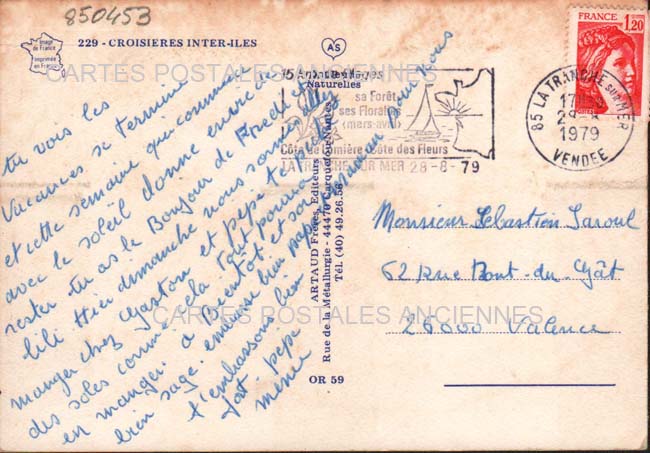 850453
Image de France
Imprimée en France
229 - CROISIERES INTER-ILES
AS
FRANCE
1,20
CARTES POSTALES ANCIENNES
15 Aout
Naturelles
sa Forêt
ses Floralies
(mars-avril)
Côte de Lumière Côte des Fleurs
LA TRANCHE SUR MER 28-8-79
85 LA TRANCHE SUR MER
17H
28-8
1979
VENDEE
tu vois les
vacances se termine
et cette semaine qui commence
avec le soleil donne envie de
rester. tu as le Bonjour de Fredo et
lili Hier dimanche nous sommes allés
manger chez Gaston et pepe te peche
des soles comme cela tu pourra
en manger. a Bientôt et sois
bien sage. embrasse bien papa maman pour nous
t'embrassons bien
fort pepe
meme
ARTAUD Frères, Editeurs
Rue de la Métallurgie - 44470 Carquefou-Nantes
Tél. (40) 49.26.56
OR 59
Monsieur Sébastien Saroul
62 Rue Pont-du-Gât
26000 Valence
CARTES POSTALES ANCIENNES